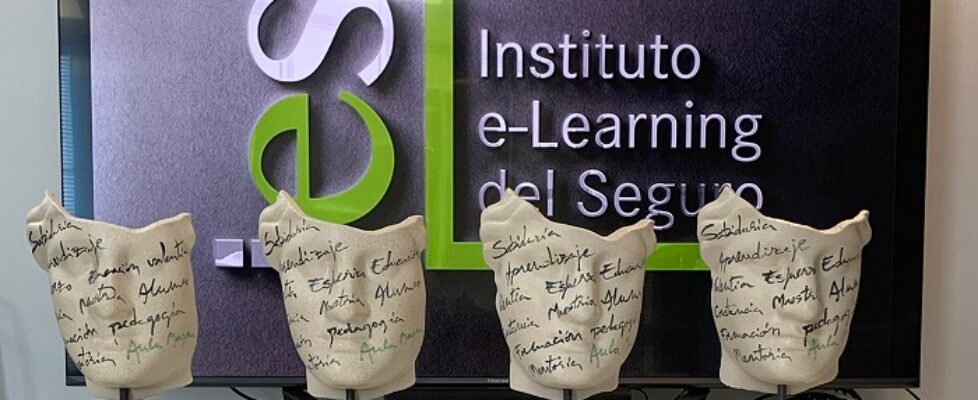 ies
Instituto
e-Learning
del Seguro
Sabiduría
ndizaje
valentía
Maestría Alumno
pedagogía
Aula Magna
Sabiduría
endizaje
Esfuerzo Educación
Maestría Alumno
pedagogía
Aula Magna
Sabiduría
Aprendizaje
Esfuerzo Educación
Maestría Alumno
Formación pedagogía
Mentoría Aula
Sabiduría
Aprendizaje
Valentía Esfuerzo Educa
Constancia Maestría Alumno
Formación pedagogía
Mentoría Aula